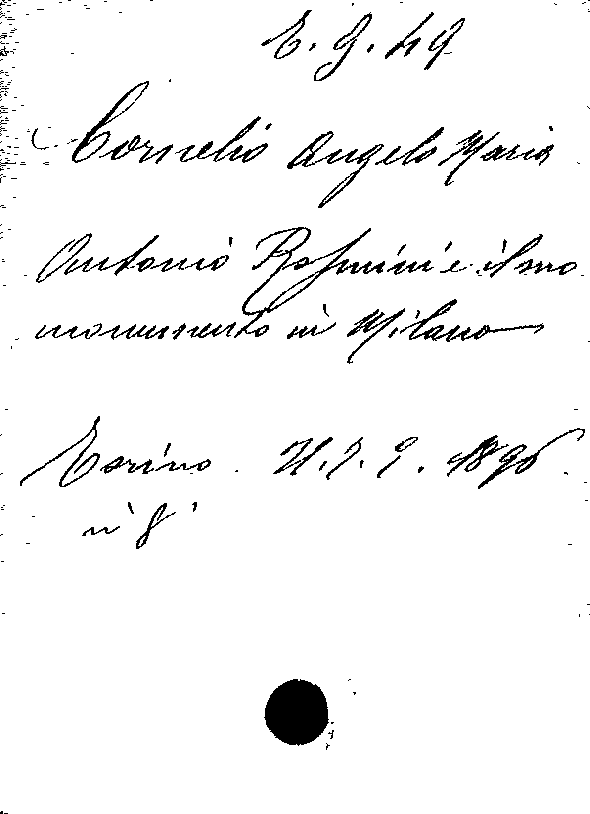 E. 9. 49
Cornelio Angelo Maria
Antonio Rosmini e il suo
monumento in Milano
Torino. U.T.E. 1896
in 8°